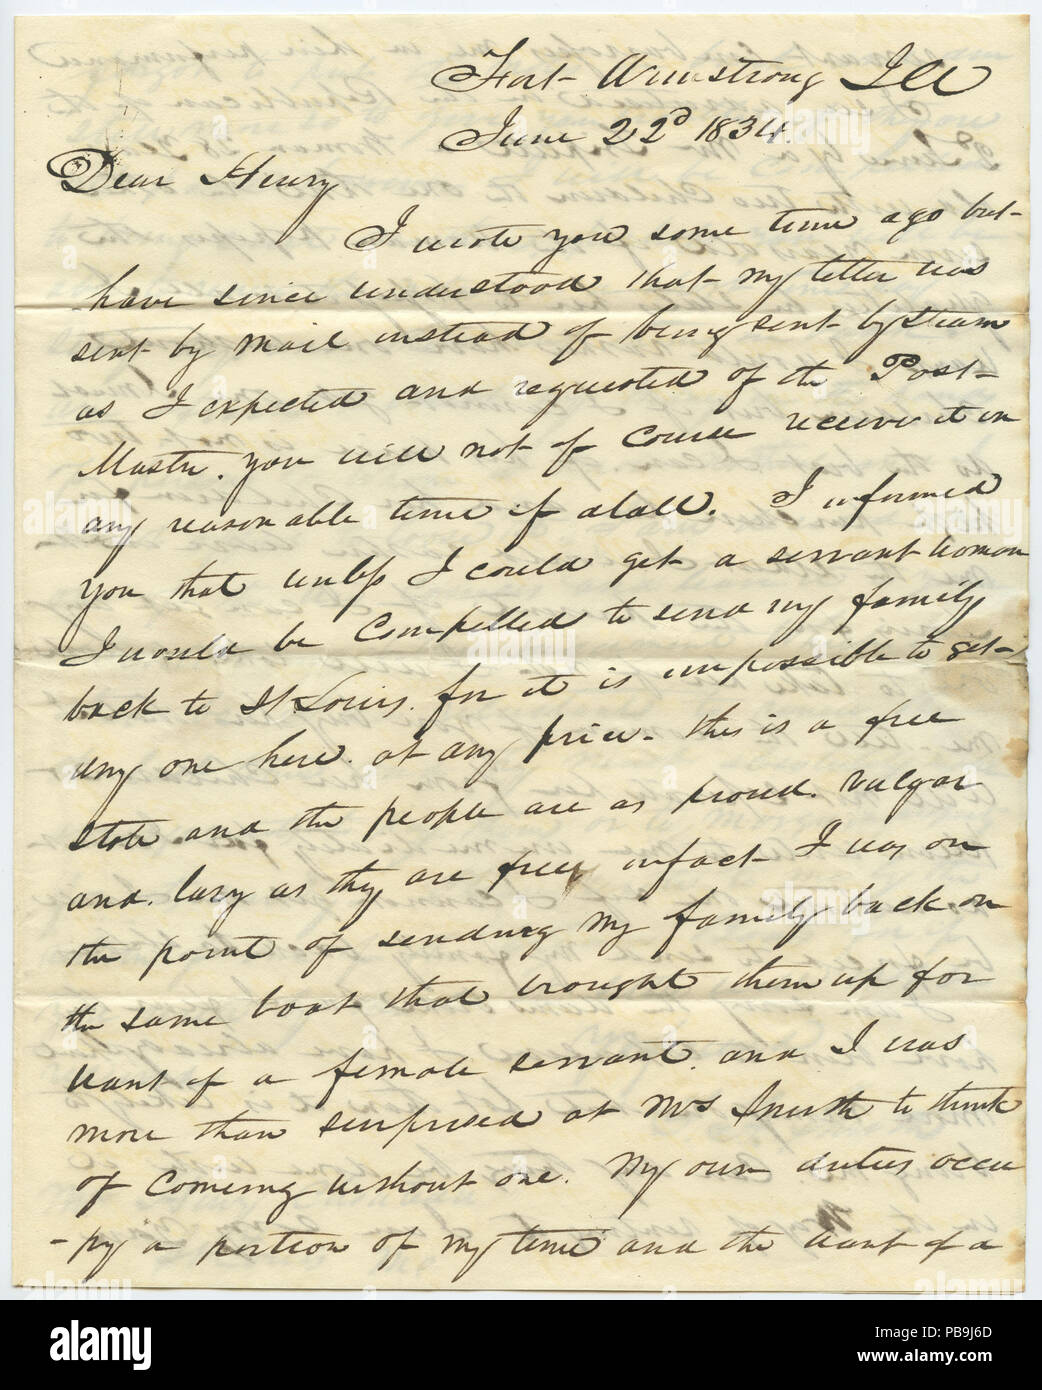 Fort Armstrong Ill
June 22d 1834.
Dear Henry
I wrote you some time ago but
have since understood that my letter was
sent by mail instead of being sent by steam
as I expected and requested of the Post-
Master. you will not of course receive it in
any reasonable time if at all. I informed
you that unless I could get a servant woman
I would be compelled to send my family
back to St Louis. for it is impossible to get
any one here. at any price. this is a free
state and the people are as proud. vulgar
and. lazy as they are free, infact I was on
the point of sending my family back on
the same boat that brought them up for
want of a female servant. and I was
more than surprised at Mrs Smith to think
of coming without one. My own duties occu
-py a portion of my time and the want of a
alamy
PB9J6D
www.alamy.com